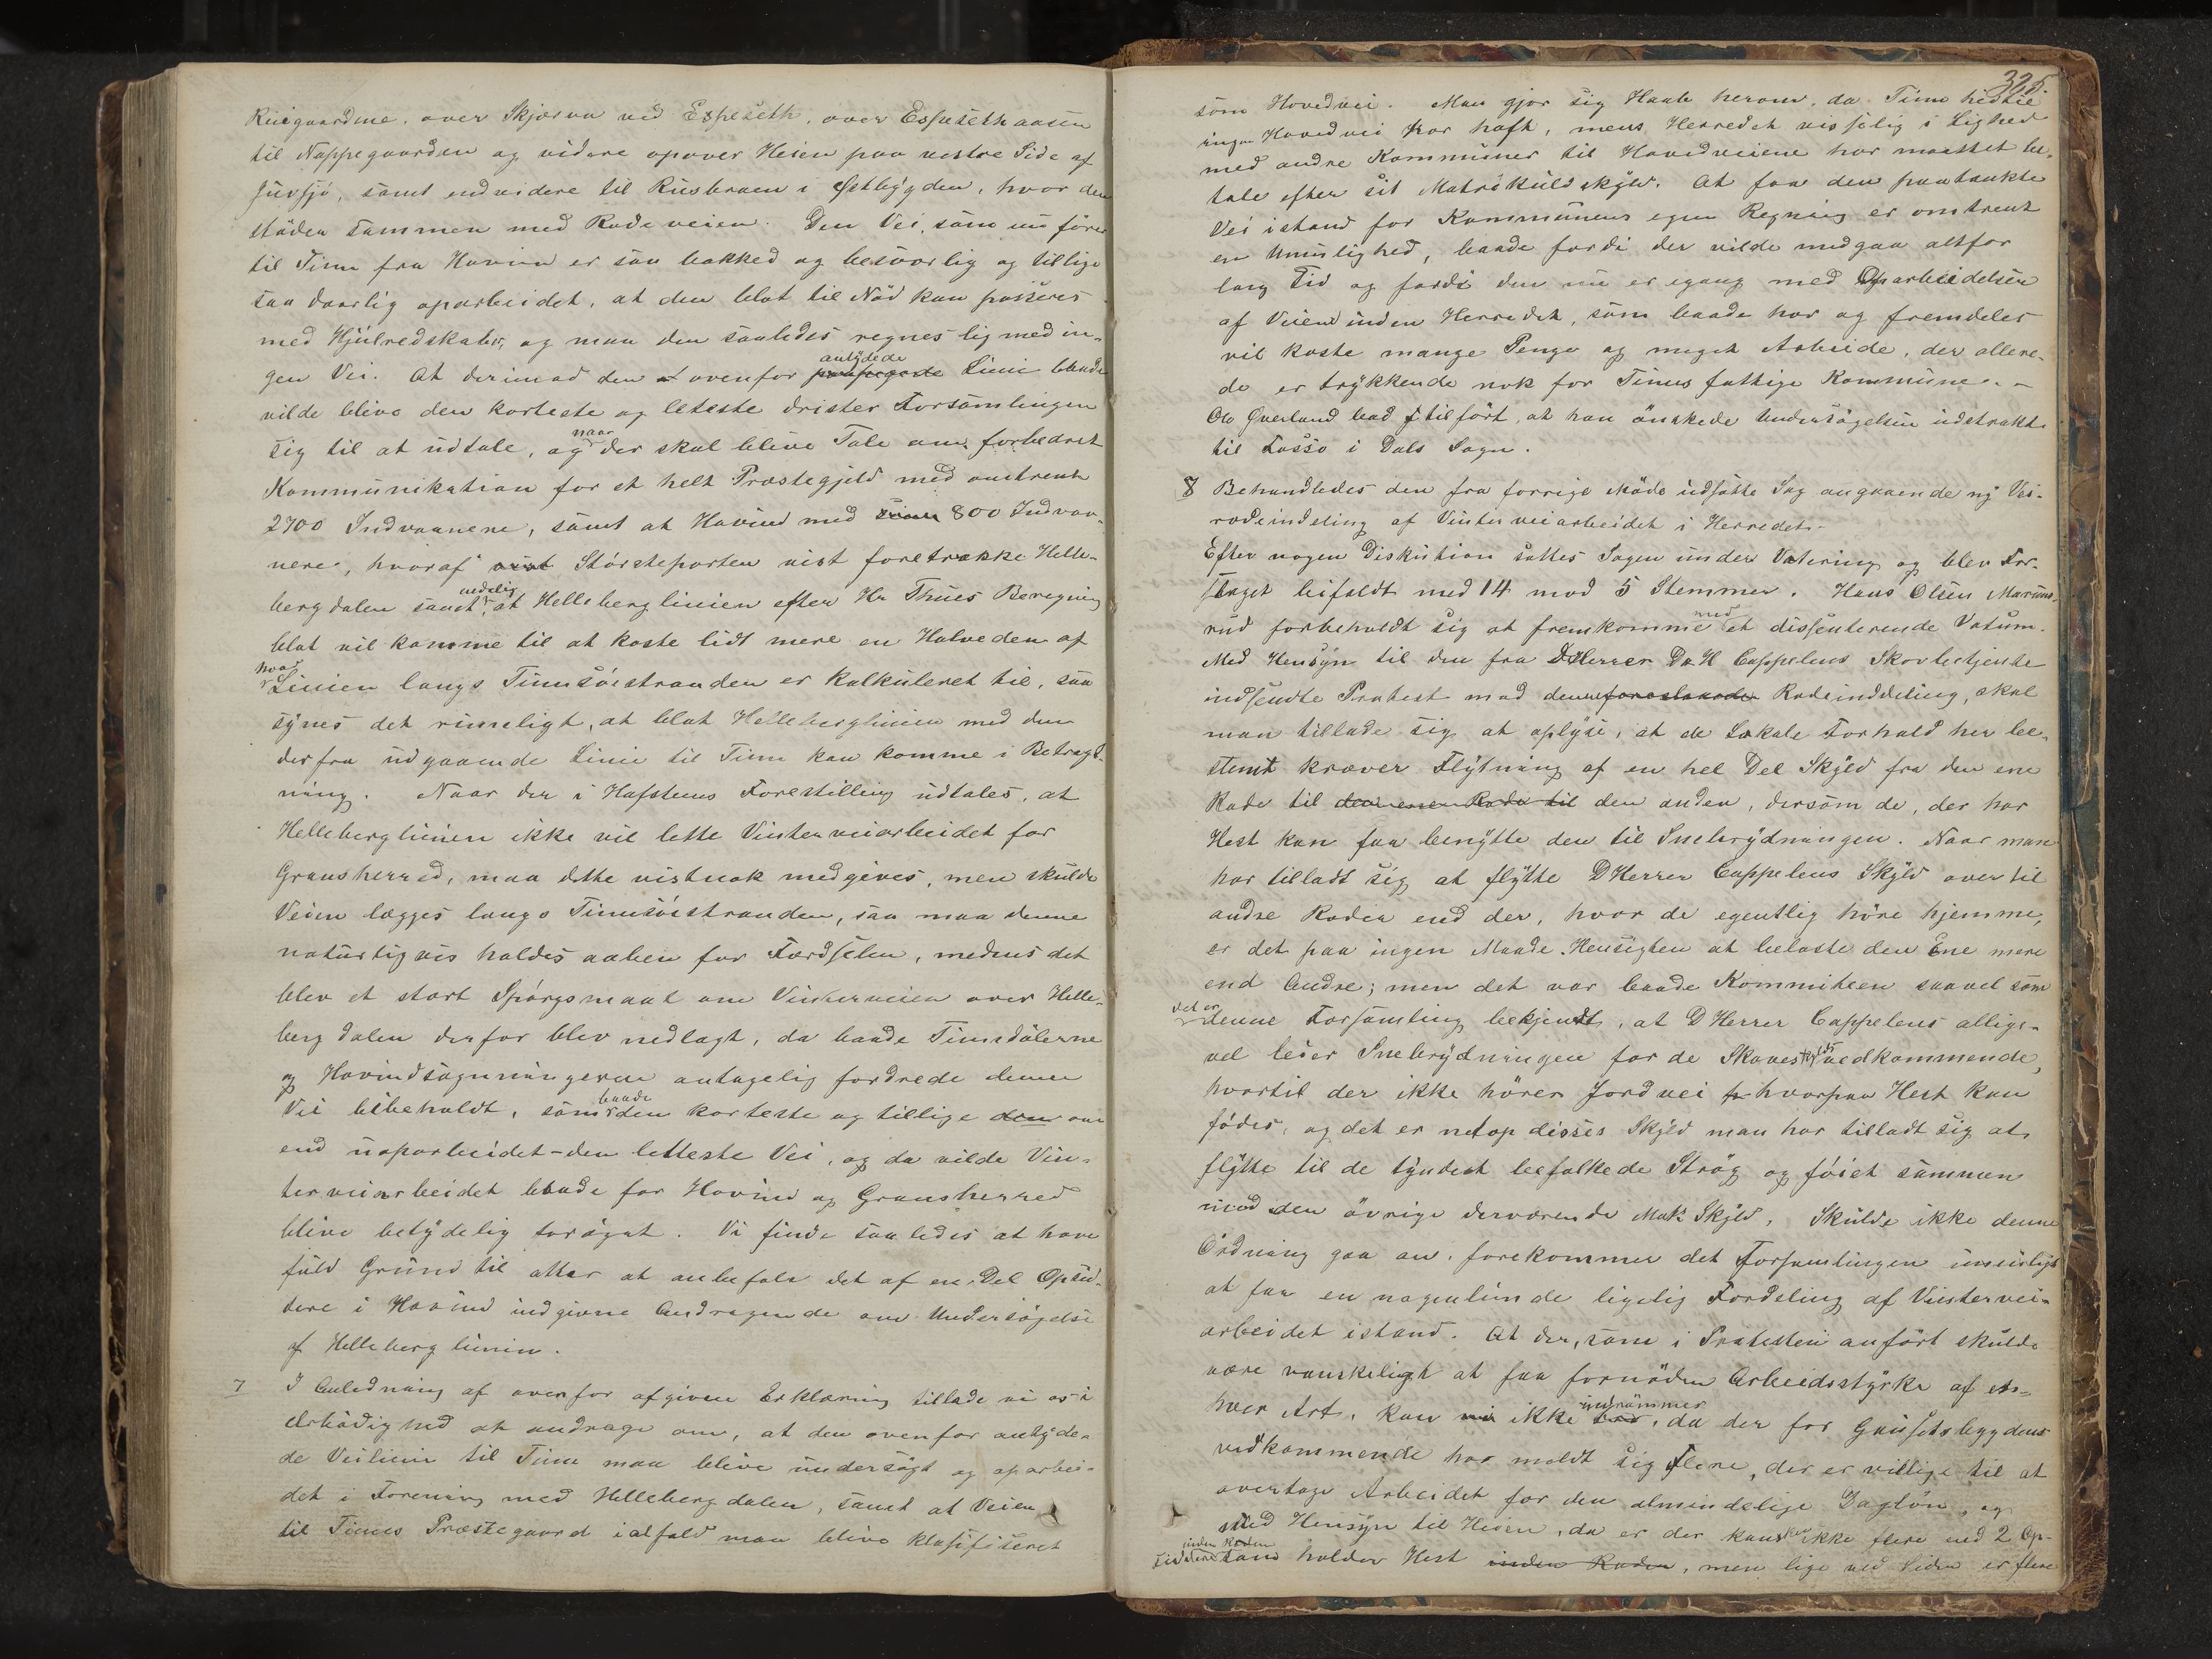 Rüigaardene, over Skjærva ved Espeseth, over Espesethaasen
til Nappegaarden og videre opover Heien paa vestre Side af
Juvsjø, samt endvidere til Rusbraen i Østbygden, hvor den
støder sammen med Rodeveien. Den Vei, som nu fører
til Tinn fra Hovin er saa bakked og besværlig og tillige
saa daarlig oparbeidet, at den blot til Nød kan passeres
med Hjulredskaber, og maa den saaledes regnes lig med in-
gen Vei. At derimod den ovenfor antydede Linie baade
vilde blive den korteste og leteste drister Forsamlingen
sig til at udtale, og naar der skal blive Tale om forbedret
Kommunikation for et helt Præstegjeld med omtrent
2700 Indvaanere, samt at Hovind med 800 Indvaa-
nere, hvoraf Störsteparten vist foretrække Helle-
bergdalen samt endelig at Helleberglinien efter Hr Thues Beregning
blot vil komme til at koste lidt mere en Halveden af
hvad Linien langs Tinnsöestranden er kalkuleret til, saa
synes det rimeligt, at blot Helleberglinien med den
derfra udgaaende Linie til Tinn kan komme i Betragt-
ning. Naar der i Hafstens Forestilling udtales, at
Helleberglinien ikke vil lette Vinterveiarbeidet for
Gransherred, maa dette vistnok medgives, men skulde
Veien lægges langs Tinnsöestranden, saa maa denne
naturligvis holdes aaben for Færdselen, medens det
blev et stort Spörgsmaal om Vinterveien over Helle-
bergdalen derfor blev nedlagt, da baade Tinnsdölerne
og Hovindsogningerne antagelig fordrede denne
Vei bibeholdt, som baade den korteste og tillige den om
end uoparbeidet - den letteste Vei, og da vilde Vin-
terveiarbeidet baade for Hovind og Gransherred
blive betydelig forøget. Vi finde saaledes at have
fuld Grund til atter at anbefale det af en Del Opsid-
dere i Hovind indgivne Andragende om Undersögelse
af Helleberglinien.
7 I Anledning af ovenfor afgivne Erklæring tillade vi os i
Ærbödighed at andrage om, at den ovenfor antyde-
de Veilinie til Tinn maa blive undersögt og oparbei-
det i Forening med Hellebergdalen, samt at Veien
til Tinns Præstegaard ialfald maa blive klasificeret
325.
som Hovedvei. Man gjør sig Haab herom, da Tinn hidtil
ingen Hovedvei har haft, mens Herredet visselig i Lighed
med andre Kommuner til Hovedveiene har maattet be-
tale efter sit Matrikulskyld. At faa den paatænkte
Vei istand for Kommunens egen Regning er omtrent
en Umulighed, baade fordi der vilde medgaa altfor
lang Tid og fordi den nu er igang med Oparbeidelsen
af Veiene inden Herredet, som baade har og fremdeles
vil koste mange Penge og meget Arbeide, der allere-
de er trykkende nok for Tinns fattige Kommune. –
Ole Øverland bad tilfört, at han önskede Undersögelsen udstrakt
til Fosso i Dals Sogn.
8 Behandledes den fra forrige Möde udsatte Sag angaaende ny Vei-
rodeindeling af Vinterveiarbeidet i Herredet. –
Efter nogen Diskution sattes Sagen under Votering og blev For-
slaget bifaldt med 14 mod 5 Stemmer. Hans Olsen Marum-
rud forbeholdt sig at fremkomme med et dissenterende Votum.
Med Hensyn til den fra DHerrer D & H Cappelens Skovbetjente
indsendte Protest mod denne foreslaaede Rodeinddeling, skal
man tillade sig at oplyse, at de Lokale Forhold her be-
stemt kræver Flytning af en hel Del Skyld fra den ene
Rode til den enen Rode til den anden, dersom de, der har
Hest kan faa benytte den til Snebrydningen. Naar man
har tilladt sig at flytte DHerrer Cappelens Skyld over til
andre Roder end der, hvor de egentlig høre hjemme,
er det paa ingen Maade Hensigten at belaste den Ene mere
end Andre; men det var baade Kommiteen saavel som
det er denne Forsamling bekjendt, at DHerrer Cappelens allige-
vel leier Snebrydningen for de Skoves vedkommende,
hvortil der ikke hörer Jordvei hvorpaa Hest kan
födes, og det er netop disses Skyld man har tilladt sig at
flytte til de tyndest befolkede Strög og föiet sammen
med den övrige derværende Mat. Skyld. Skulde ikke denne
Ordning gaa an, forekommer det Forsamlingen umuligt
at faa en nogenlunde ligelig Fordeling af Vintervei-
arbeidet istand. At der, som i Protesten anfört skulde
være vanskeligt at faa fornöden Arbeidsstyrke af en-
hver Art, kan vi ikke indrömmes, da der for Gausetbygdens
vedkommende har meldt sig Flere, der er villige til at
overtage Arbeidet for den almindelige Daglön, og
med Hensyn til Heien, da er der kanske ikke flere end 2 Op-
siddere inden Roden som holder Hest inden Roden, men lige ved Siden er flere